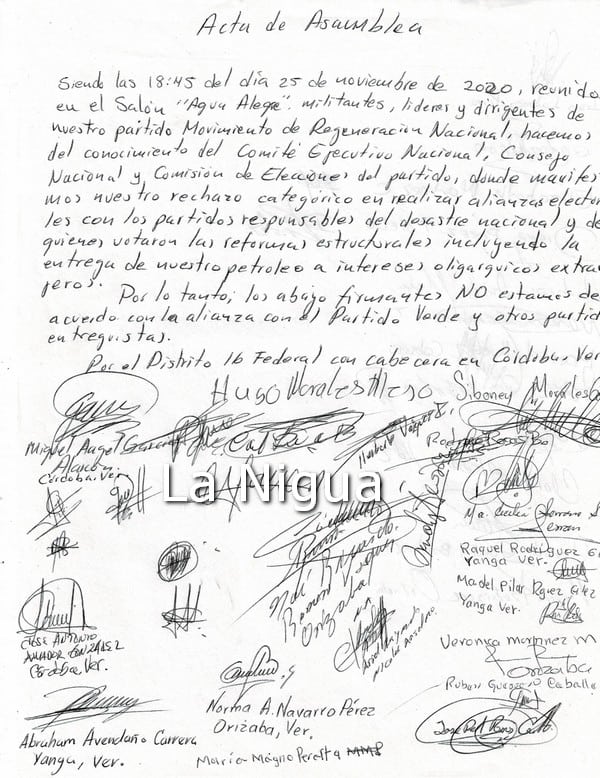 Acta de Asamblea
Siendo las 18:45 del día 25 de noviembre de 2020, reunido
en el Salón "Agua Alegre", militantes, lideres y dirigentes de
nuestro partido Movimiento de Regeneración Nacional, hacemos
del conocimiento del Comité Ejecutivo Nacional, Consejo
Nacional y Comisión de Elecciones del partido, donde manifes
mos nuestro rechazo categórico en realizar alianzas elector
les con los partidos responsables del desastre nacional y de
quienes votaron las reformas estructurales incluyendo la
entrega de nuestro petroleo a intereses oligarquicos extra
jeros.
Por lo tanto, los abajo firmantes NO estamos de
acuerdo con la alianza con el Partido Verde y otros partid
entreguistas.
Por el Distrito 16 Federal con cabecera en Córdoba, Ver
Hugo Morales
Siboney Morales
Miguel Angel
Alarcón
Córdoba, Ver.
La Nigua
Raquel Rodríguez G
Yanga Ver.
Ma del Pilar
Yanga Ver.
Orizaba
Veronica Martinez M
Orizaba
Ruben
JOSE ANTONIO
AMADOR GONZALEZ
Córdoba, Ver.
Norma A. Navarro Pérez
Orizaba, Ver.
Abraham Avendaño Carrera
Yanga, Ver.
María Magno Peralta